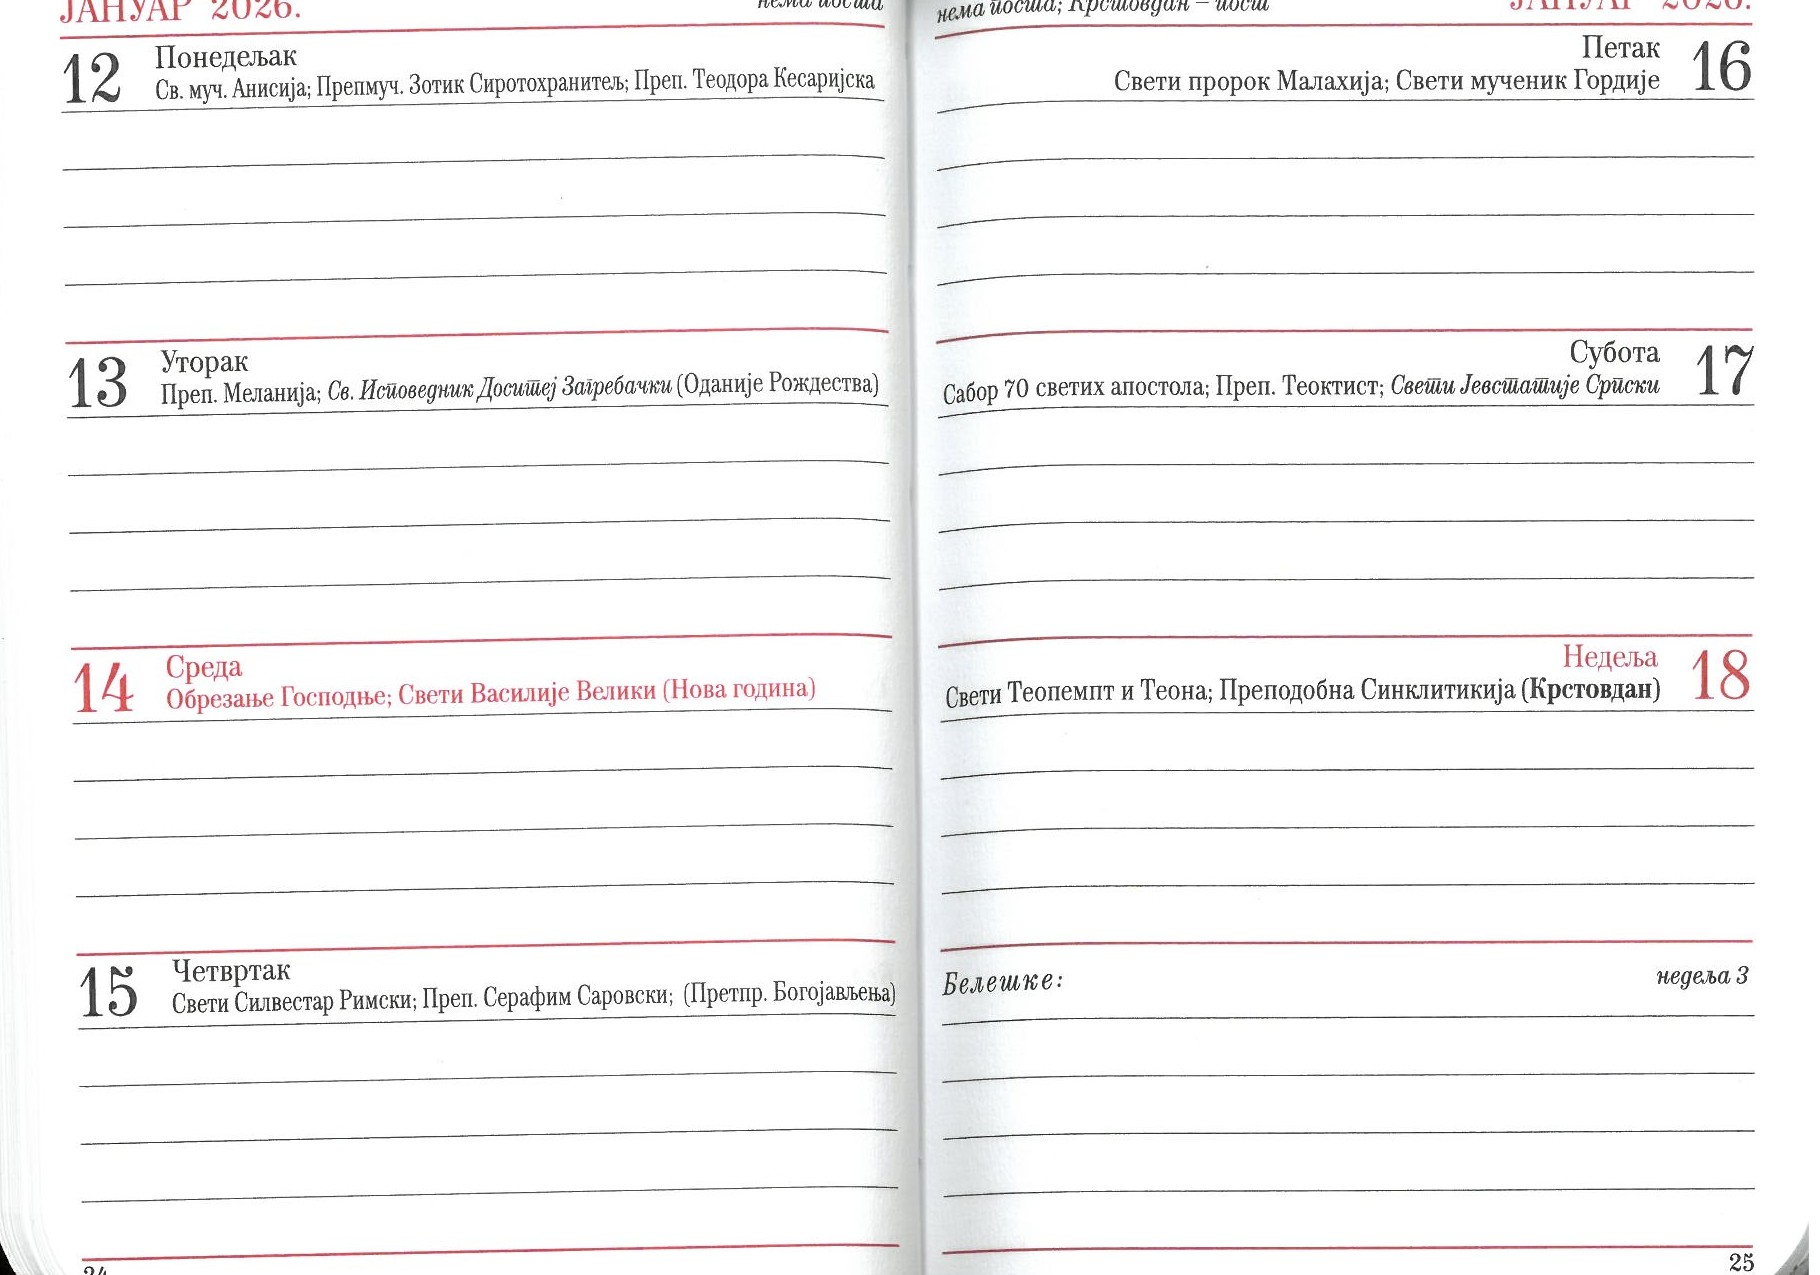 ЈАНУАР 2026.
нема поста
12
Понедељак
Св. муч. Анисија; Препмуч. Зотик Сиротохранитељ; Преп. Теодора Кесаријска
13
Уторак
Преп. Меланија; Св. Исповедник Доситеј Загребачки (Оданије Рождества)
14
Среда
Обрезање Господње; Свети Василије Велики (Нова година)
15
Четвртак
Свети Силвестар Римски; Преп. Серафим Саровски; (Претпр. Богојављења)
24
нема поста; Крстовдан – пост
ЈАНУАР 2026.
Петак
16
Свети пророк Малахија; Свети мученик Гордије
Субота
17
Сабор 70 светих апостола; Преп. Теоктист; Свети Јевстатије Српски
Недеља
18
Свети Теопемпт и Теона; Преподобна Синклитикија (Крстовдан)
Белешке:
недеља 3
25